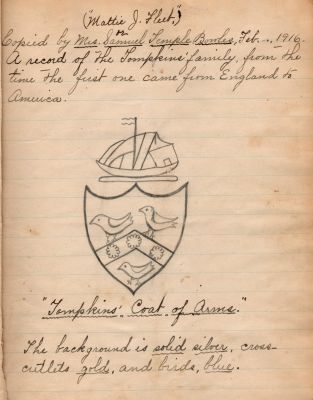 ("Mattie J. Fleet")
Copied by Mrs. Samuel Temple Bowles, Feb. -, 1916.
or
A record of the Tompkins' family, from the
time the first one came from England to
America.
"Tompkins' Coat of Arms."
The background is solid silver, cross-
cutlets gold, and birds, blue.